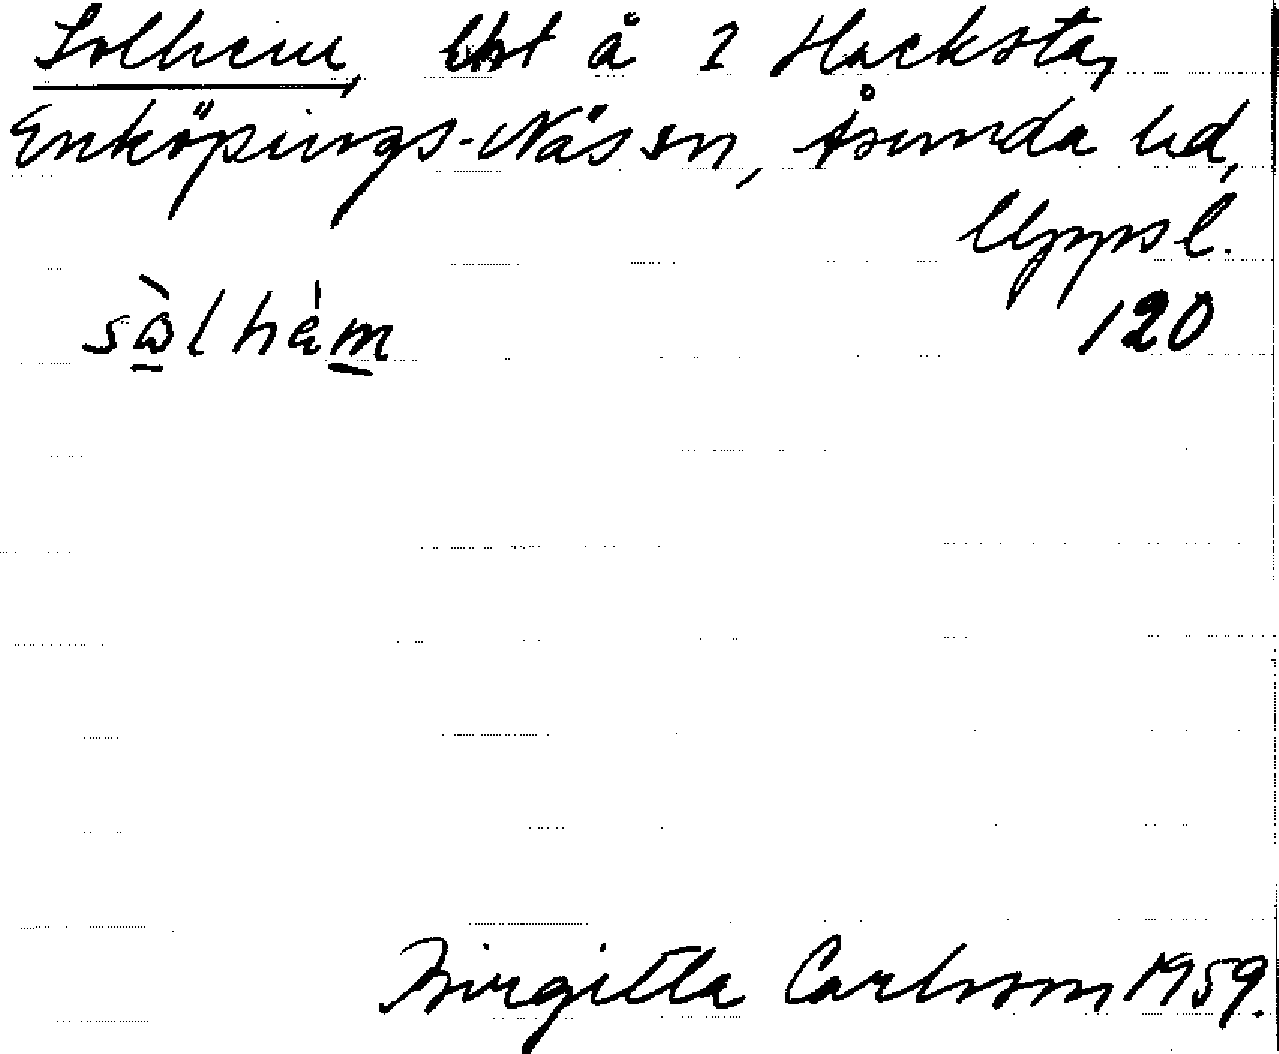 Solhem, lht å 2 Hacksta,
Enköpings-Näs sn, Åsunda hd,
Uppsl.
sɷ̀lhèm 120
Birgitta Carlsson 1959.